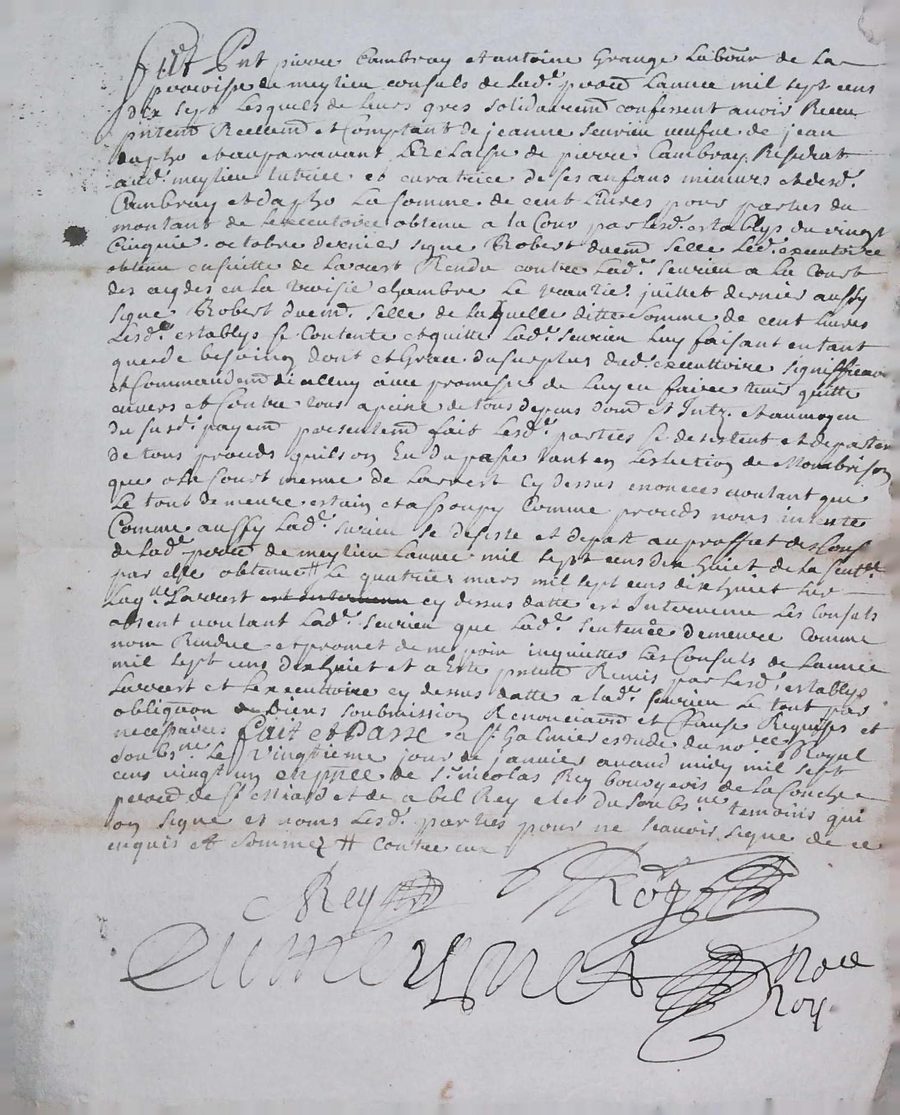 Fut Pnt pierre Cambray et antoine Grange Labour de La
parroisse de meylieu consuls de Lad. parred Lannee mil sept cens
dix sept Lesquels de Leurs gres solidairemd confessent avoir Receu
pntemt Reellemd et Comptant de jeanne seurieu veufve de jean
dapho et auparavant Relaisse de pierre Cambray Residant
aud. meylieu tutrice et curatrice de ses anfans mineurs et desd.
Cambray et dapho La somme de cent Livres pour parties du
montant de Lexecutoire obtenu a la Cour par Lesd. establys du vingt
Cinquie. octobre dernier signe Robert duemt selle Led. executoire
obtenu ensuitte de Larrest Rendu contre Lad. seurieu a La Court
des aydes en La troisie chambre Le trantie. juillet dernier aussy
signe Robert duemt selle de Laquelle ditte somme de cent Livres
Lesd. establys se contente et quitte Lad. seurieu Luy faisant en tant
que de besoing dont et Grace du surplus dud. executtoire
et Commandemd avec promesse de Luy en faire tenir quitte
envers et Contre tous a peine de tous depens dom et Intz. et aumoyen
du susd. payemd presentemd fait Lesd. parties se desistent et departent
de tous proceds quils on Eu du passe tant en Leslection de Montbrison
que a La Court mesme de Larrest Cy dessus enonces voulant que
Le tout demeure estain et assoupy Comme proceds nous intente
Comme aussy Lad. seurieu se desiste et depart au proffiet des Cons.
de Lad. parred de meylieu Lannee mil sept cens dix huict de la sentce
par elle obtenue # Le quatrie. mars mil sept cens dix huict sur
Laqlle Larrest cy dessus datte est Intervenue Les Consuls
absent voulant Lad. seurieu que Lad. sentence demeure Comme
nom Rendue et promet de ne poin inquietter Les Consuls de Lannee
mil sept cens dix huict et a Este pntemt Remis par Lesd. establys
Larrest et Lexecuttoire cy dessus datte a Lad. seurieu Le tout par
obligaon de biens soubmission Renonciaond et Clause Requises et
necessaire fait et passe a St Galmier estude du nore Royal
soubsne Le Vingtieme jour de janvier avand midy mil sept
cens vingt un en pnce de sr. nicolas Rey bourgeois de la Conche
parred de St Miard et de abel Rey clerc du soubsne temoins qui
on signe et noms Lesd. parties pour ne scavoir signe de ce
enquis et sommez # contre eux
Rey Rey
Dumeynet Nore
Roy.